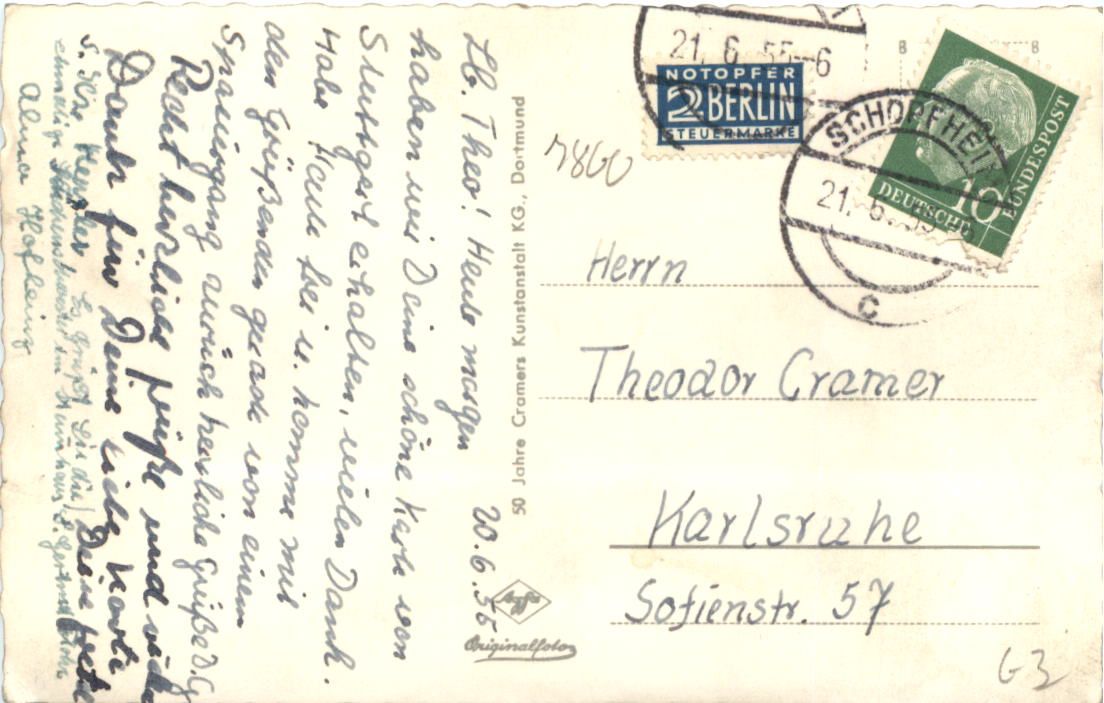 Lb. Theo! Heute morgen
20.6.55
haben wir Deine schöne Karte von
Stuttgart erhalten, vielen Dank.
Habe Heute bei u. komme mit
den Grüßenden gerade von einem
Spaziergang zurück herzliche Grüße D. G
Recht herzliche Grüße und
Dank für Deine liebe Karte Deine
Es grüßt
Alma
50 Jahre Cramers Kunstanstalt KG., Dortmund
Agfa
Originalfoto
21. 6. 55-6
NOTOPFER
2 BERLIN
STEUERMARKE
7860
8 8
SCHOPFHEIM
21. 6. 55-6
c
DEUTSCHE
BUNDESPOST
10
Herrn
Theodor Cramer
Karlsruhe
Sofienstr. 57
G3